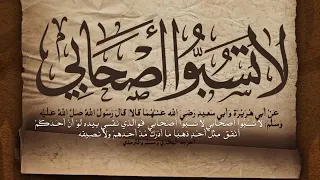 لا تسبوا أصحابي
عن أبي هريرة وأبي سعيد رضي الله عنهما قالا قال رسول الله صلى الله عليه
وسلم لا تسبوا أصحابي لا تسبوا أصحابي فوالذي نفسي بيده لو أن أحدكم
أنفق مثل أحد ذهبا ما أدرك مد أحدهم ولا نصيفه